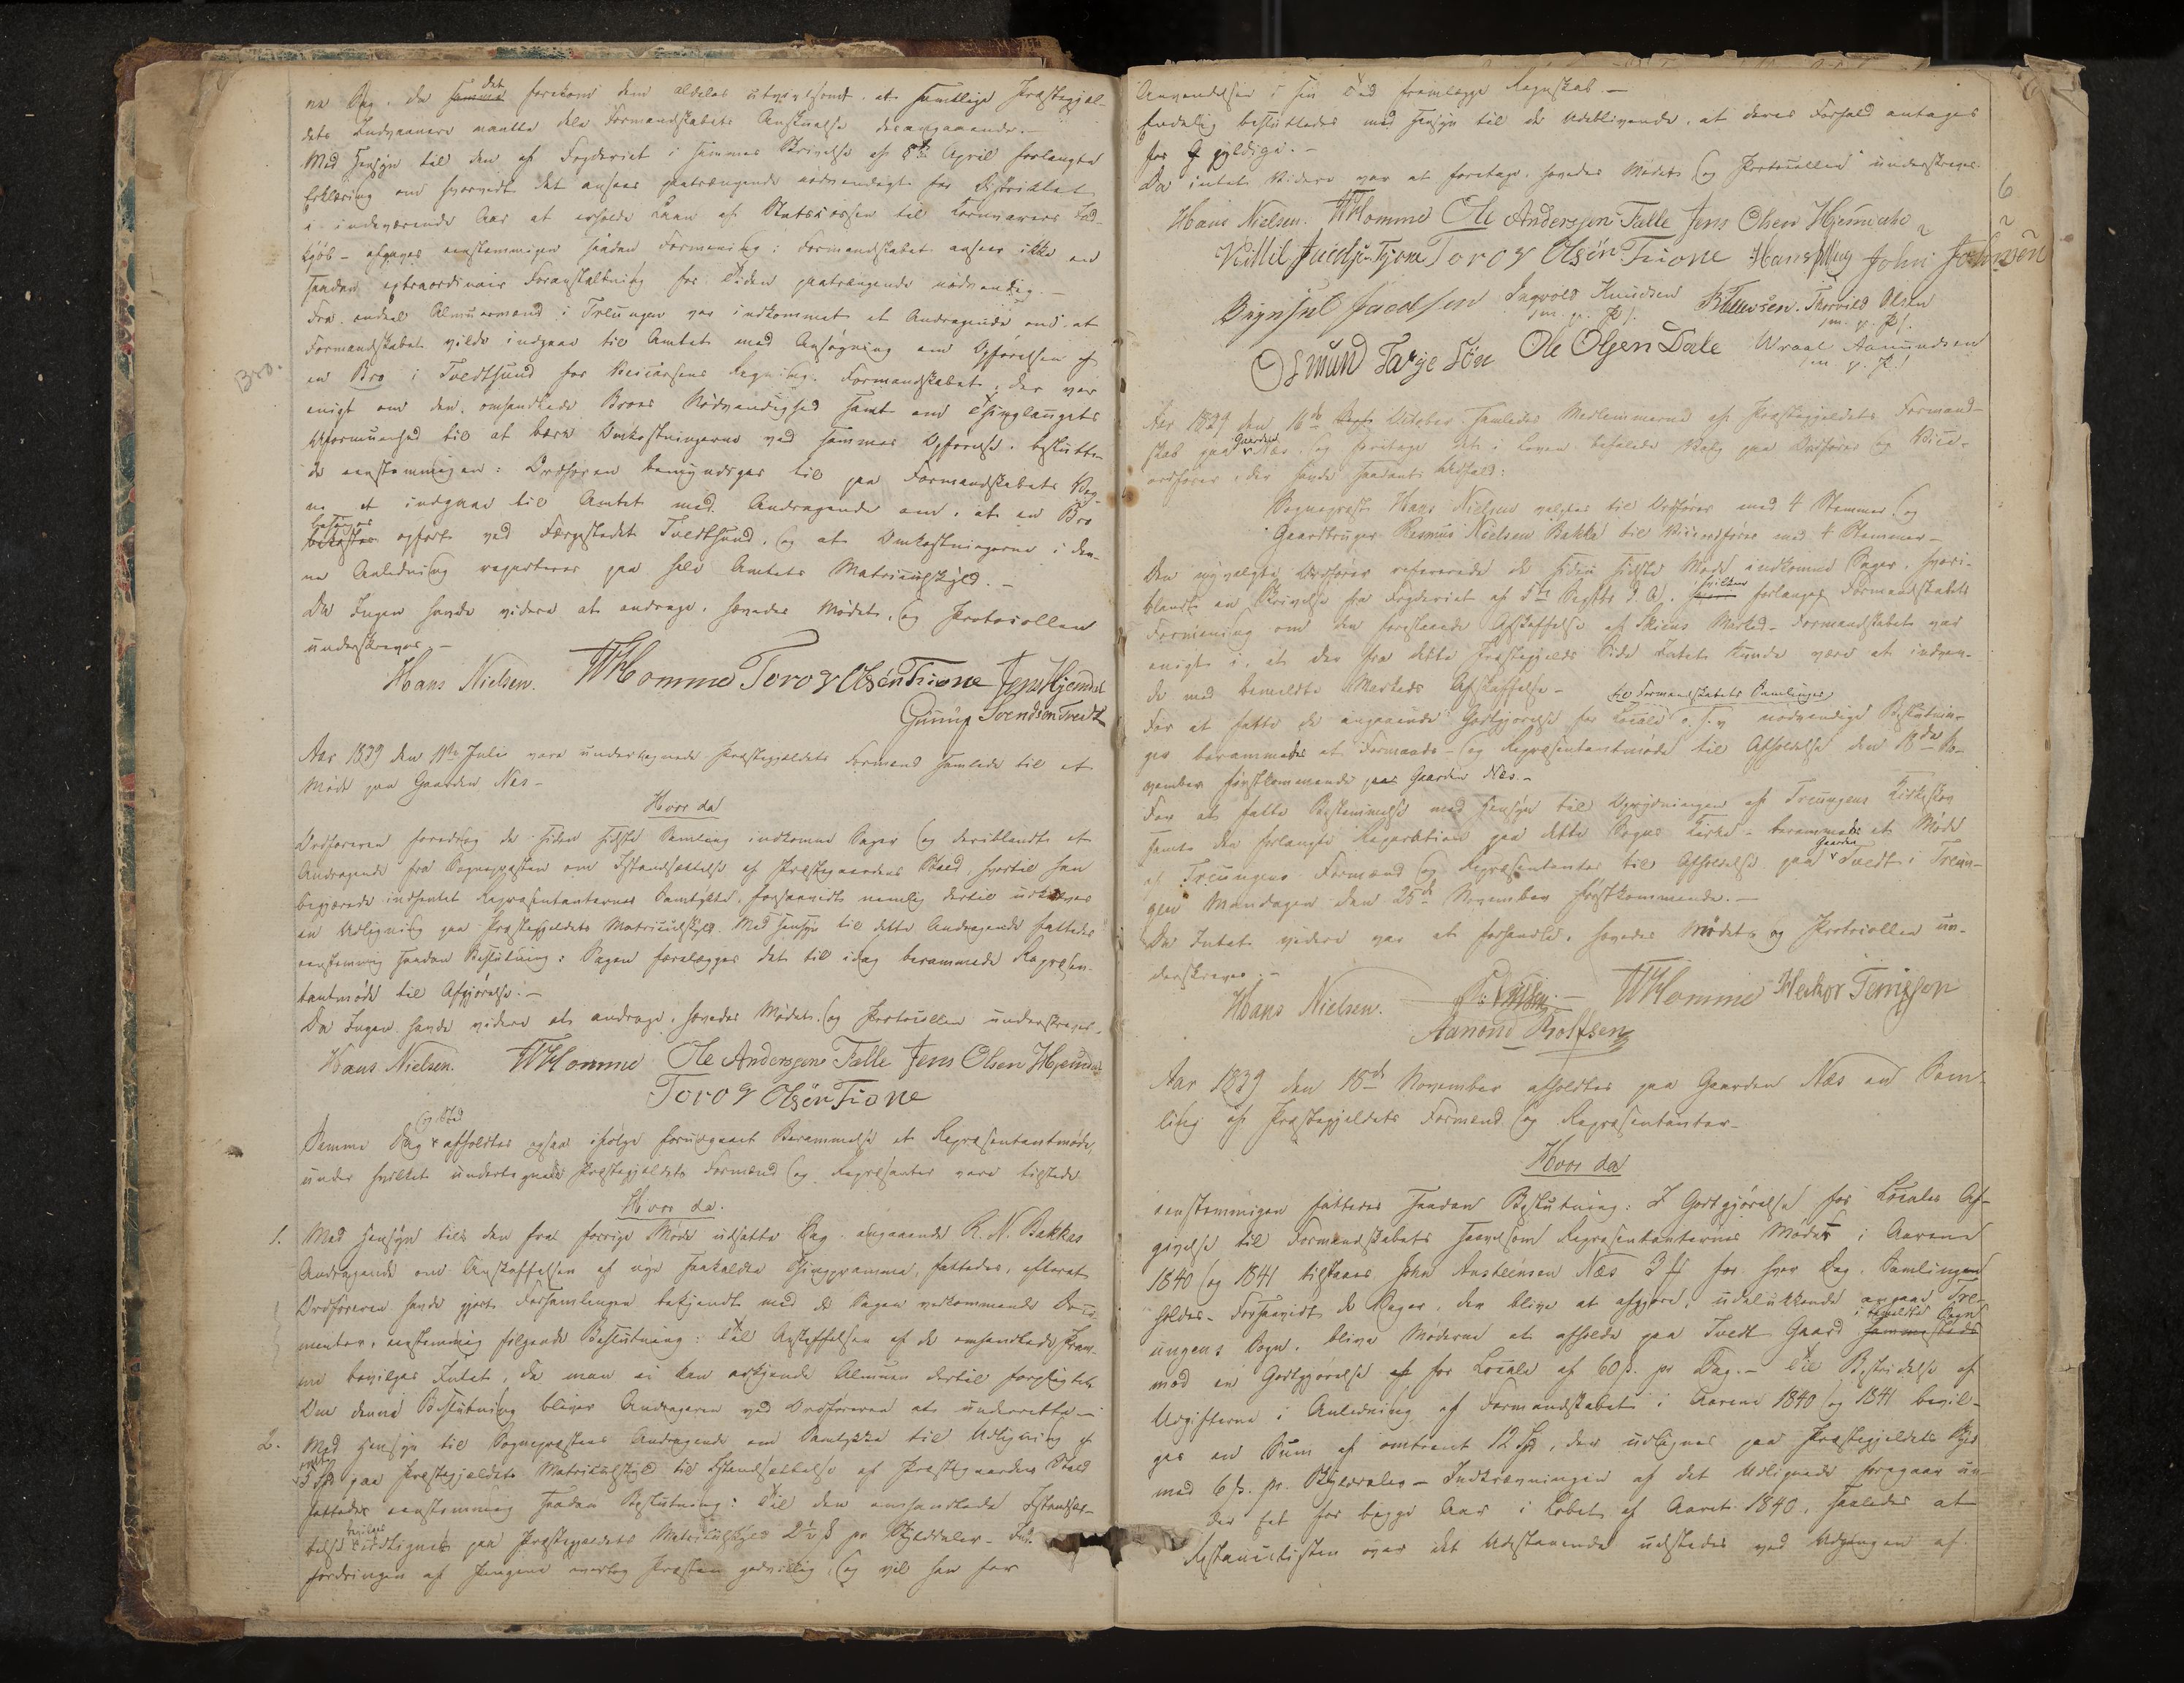 ne Sag, da det forekom dem aldeles utvivlsomt, at samtlige Præstegjel-
dets Indvaanere maatte dele Formandskabets Anskuelse desangaaende.-
Med Hensyn til den af Fogderiet i sammes Skrivelse af 8de April forlangte
Erklæring om hvorvidt det ansees paatrængende nødvendigt for Distriktet
i indeværende Aar at erholde Laan af Statscassen til Kornvarers Ind-
kjøb - afgaves eenstemmigen saadan Formening: Formandskabet anseer ikke en
saadan extraordinair Foranstaltning for Tiden paatrængende nødvendig.-
Fra endeel Almuesmænd i Treungen var indkommet et Andragende om, at
Formandskabet vilde indgaae til Amtet med Ansøgning om Opførelsen af
Bro.
en Bro i Tvedtsund for Regning. Formandskabet, der var
enigt om den omhandlede Broes Nødvendighed samt om Thinglaugets
Uformuenhed til at bære Omkostningerne ved sammes Opførelse, beslutte-
de eenstemmigen: Ordføreren bemyndiges til paa Formandskabets Veg-
ne at indgaae til Amtet med Andragende om, at en Bro
besørges opført ved Færgestedet Tvedtsund, og at Omkostningerne i den-
ne Anledning reparteres paa hele Amtets Matriculskyld.-
Da Ingen havde videre at andrage, hævedes Mødet, og Protocollen
underskreves.-
Hans Nielsen. THomme Torov Olsen Trione Jens Hjemdal
Gunnuf Svendsen Tvedt
Aar 1839 den 11te Juli vare undertegnede Præstegjeldets Formænd samlede til et
Møde paa Gaarden Næs-
Hvor da
Ordføreren foredrog de siden sidste Samling indkomne Sager og deriblandt et
Andragende fra Sognepræsten om Istandsættelse af Præstegaardens Stald, hvortil han
begjærede indhentet Repræsentanternes Samtykke, forsaavidt nemlig dertil udkræves
en Udligning paa Præstegjeldets Matriculskyld. Med Hensyn til dette Andragende fattedes
eenstemmig saadan Beslutning: Sagen forelægges det til idag berammede Repræsen-
tantmøde til Afgjørelse.-
Da Ingen havde videre at andrage, hævedes Mødet, og Protocollen underskreves.
Hans Nielsen. THomme Ole Andersen Talle Jens Olsen Hjemdal
Torov Olsen Trione
Samme Dag og Sted afholdtes ogsaa ifølge forudgaaet Berammelse et Repræsentantmøde,
under hvilket undertegnede Præstegjeldets Formænd og Repræsenter vare tilstede
Hvor da.
1. Med Hensyn til den fra forrige Møde udsatte Sag angaaende R. N. Bakkes
Andragende om Anskaffelsen af nye saakaldte Thingpramme, fattedes, efterat
Ordføreren havde gjort Forsamlingen bekjendt med de Sagen vedkommende Docu-
menter, eenstemmig følgende Beslutning: Til Anskaffelsen af de omhandlede Pram-
me bevilges Intet, da man ei kan erkjende Almuen dertil forpligtet.
Om denne Beslutning bliver Andrageren ved Ordføreren at underrette.-
2. Med Hensyn til Sognepræstens Andragende om Samtykke til Udligning af
5 Spd paa Præstegjeldets Matriculskyld til Istandsættelse af Præstegaardens Stald
fattedes eenstemmig saadan Beslutning: Til den omhandlede Istandsæt-
telse udlignes paa Præstegjeldets Matriculskyld 2½ ß pr Skylddaler. Ind-
fordringen af Pengene overtog Præsten godvillig, og vil han for
Anvendelsen i sin Tid fremlægge Regnskab.-
Endelig besluttedes med Hensyn til de Udeblivende, at deres Forfald antages
for gyldige.-
Da intet videre var at foretage, hævedes Mødet og Protocollen underskreves.
6
Hans Nielsen. THomme Ole Andersen Talle Jens Olsen Hjemdahl
Kittil Torov Olsen Trione Hans John Johnsen
Brynjul Jacobsen Ingvold Knudsen Thorvild Olsen
m. p. P. m. p. P.
Osmund Tarje Søn Ole Olsen Dale Wraal Aamundsen
m. p. P.
Aar 1839 den 16de October samledes Medlemmerne af Præstegjeldets Formand-
skab paa Gaarden Næs for at foretage det i Loven befalede Valg paa Ordfører og Vice-
ordfører, der havde saadant Udfald:
Sognepræst Hans Nielsen valgtes til Ordfører med 4 Stemmer og
Gaardbruger Rasmus Nielsen Bakka til Viceordfører med 4 Stemmer-
Den nyvalgte Ordfører refererede de siden sidste Møde indkomne Sager, hvori-
blandt en Skrivelse fra Fogderiet af 5te Septbr d. A., hvilken forlanger Formandskabets
Formening om den forestaaende Afskaffelse af Skiens Marked - Formandskabet var
enigt i, at der fra dette Præstegjelds Side Intet kunde være at indven-
de mod bemeldte Markeds Afskaffelse-
For at fatte de angaaende Godtgjørelse for Locale til Formandskabets Samlinger o. s. v. nødvendige Beslutnin-
ger berammedes et Formands- og Repræsentantmøde til Afholdelse den 18de No-
vember førstkommende paa Gaarden Næs.-
For at fatte Bestemmelse med Hensyn til Oprydningen af Treungens Kirkeskov
samt den forlangte Reparation paa dette Sogns Kirke - berammedes et Møde
af Treungens Formænd og Repræsentanter til Afholdelse paa Gaarden Tvedt i Treun-
gen Mandagen den 25de November førstkommende.-
Da Intet videre var at forhandle, hævedes Mødet og Protocollen un-
derskreves.-
Hans Nielsen. THomme
Aanond Rolfsen
Aar 1839 den 18de November afholdtes paa Gaarden Næs en Sam-
ling af Præstegjeldets Formænd og Repræsentanter-
Hvor da
eenstemmigen fattedes saadan Beslutning: I Godtgjørelse for Locales Af-
givelse til Formandskabets saavelsom Repræsentanternes Møder i Aarene
1840 og 1841 tilstaaes John Austeensen Næs 3 for hver Dag, Samlingen
holdes. Forsaavidt de Sager, der blive at afgjøre, udelukkende angaae Tre-
ungens Sogn, blive Møderne at afholde paa Tvedt Gaard i bemeldte Sogn
mod en Godtgjørelse for Locale af 60 ß. pr Dag.- Til Bestridelse af
Udgifterne i Anledning af Formandskabet i Aarene 1840 og 1841 bevil-
ges en Sum af omtrent 12 Spd, der udlignes paa Præstegjeldets Skyld
med 6 ß. pr. Skylddaler - Indkrævningen af det Udlignede foregaar un-
der Eet for begge Aar i Løbet af Aaret 1840, saaledes at
Restancelisten over det Udestaaende udstedes ved Udgangen af